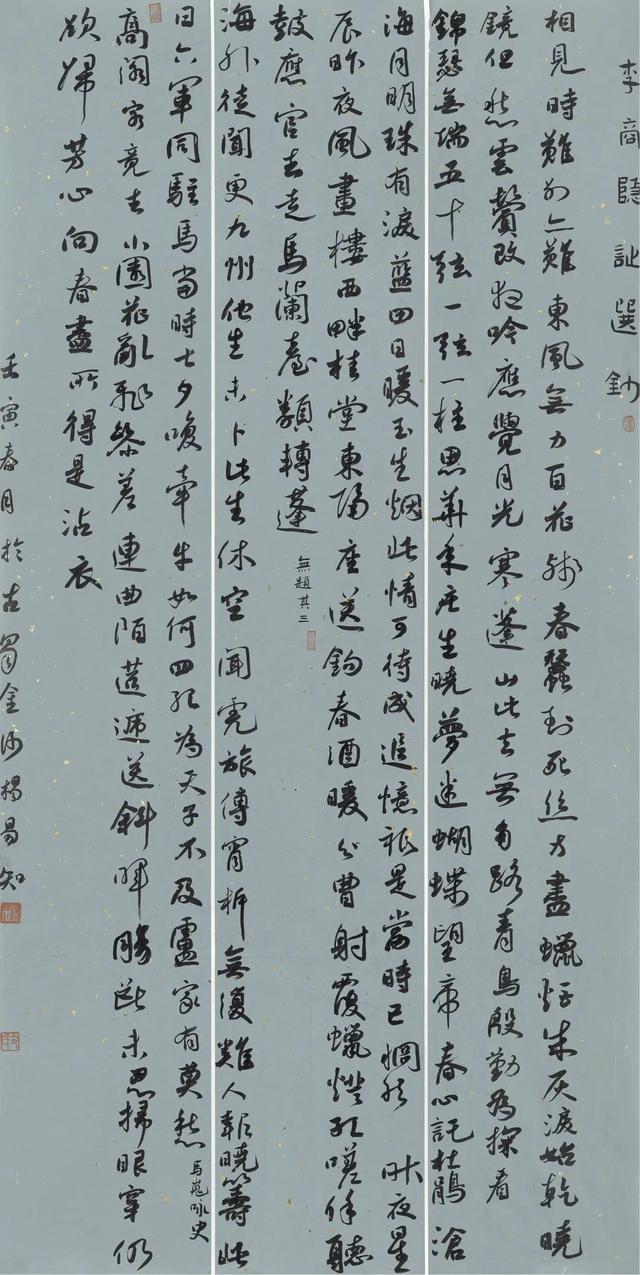 李商隱詩選鈔
相見時難別亦難東風無力百花殘春蠶到死絲方盡蠟炬成灰淚始乾曉
鏡但愁雲鬢改夜吟應覺月光寒蓬山此去無多路青鳥殷勤為探看
錦瑟無端五十弦一弦一柱思華年莊生曉夢迷蝴蝶望帝春心託杜鵑滄
海月明珠有淚藍田日暖玉生烟此情可待成追憶祇是當時已惘然 昨夜星
辰昨夜風畫樓西畔桂堂東隔座送鉤春酒暖分曹射覆蠟燈紅嗟余聽
鼓應官去走馬蘭臺類轉蓬 無題其三
海外徒聞更九州他生未卜此生休空聞虎旅傳宵柝無復雞人報曉籌此
日六軍同駐馬當時七夕咲牽牛如何四紀為天子不及盧家有莫愁 馬嵬咏史
高閣客竟去小園花亂飛參差連曲陌迢遞送斜暉腸斷未忍掃眼穿仍
欲歸芳心向春盡所得是沾衣
壬寅春月於古蜀金沙楊昜知